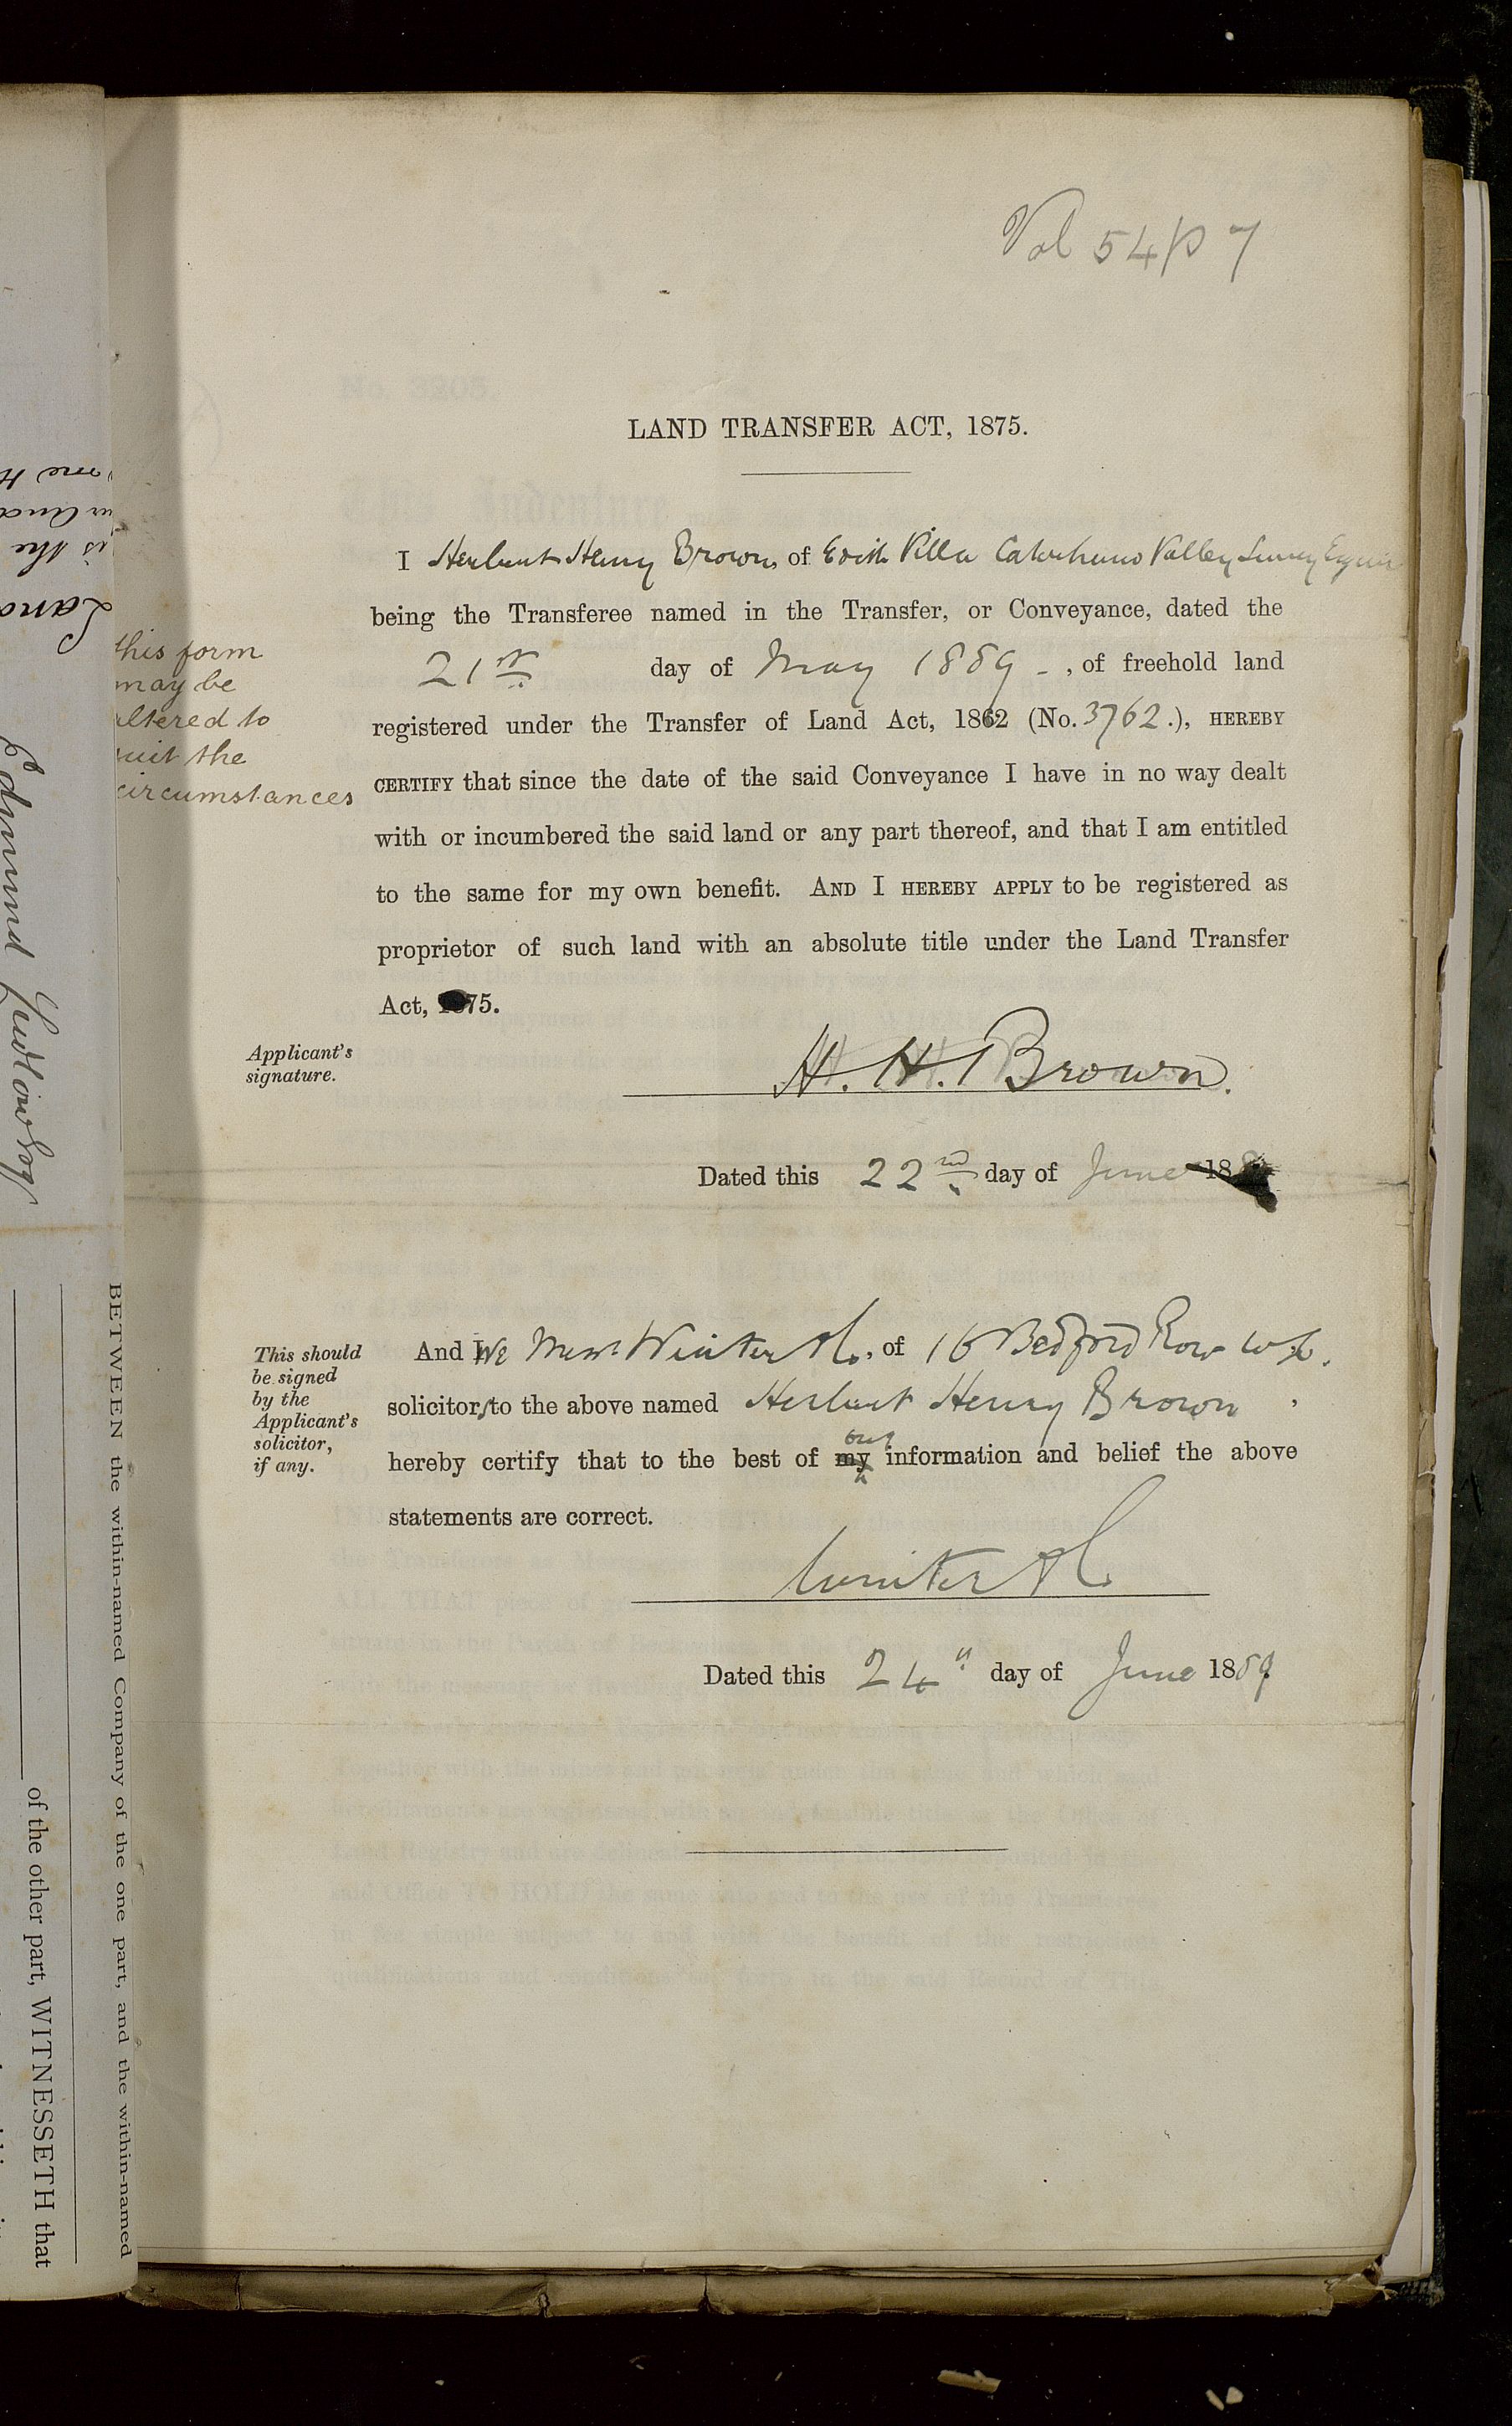 Vol 54/p 7
LAND TRANSFER ACT, 1875.
I Herbert Henry Brown, of Edith Villa Caterham Valley Surrey Esquire
being the Transferee named in the Transfer, or Conveyance, dated the
21st day of May 1889 , of freehold land
registered under the Transfer of Land Act, 1862 (No. 3762.), HEREBY
CERTIFY that since the date of the said Conveyance I have in no way dealt
with or incumbered the said land or any part thereof, and that I am entitled
to the same for my own benefit. AND I HEREBY APPLY to be registered as
proprietor of such land with an absolute title under the Land Transfer
Act, 1875.
this form
may be
altered to
suit the
circumstances
Applicant's
signature.
H. H. Brown.
Dated this 22nd day of June 188
This should
be signed
by the
Applicant's
solicitor,
if any.
And We Messrs Winter & Co., of 16 Bedford Row W.C.
solicitors to the above named Herbert Henry Brown
hereby certify that to the best of my our information and belief the above
statements are correct.
Winter & Co
Dated this 24th day of June 1889
is the
Land
Edmund Ludlow
BETWEEN the within-named Company of the one part, and the within-named
of the other part, WITNESSETH that